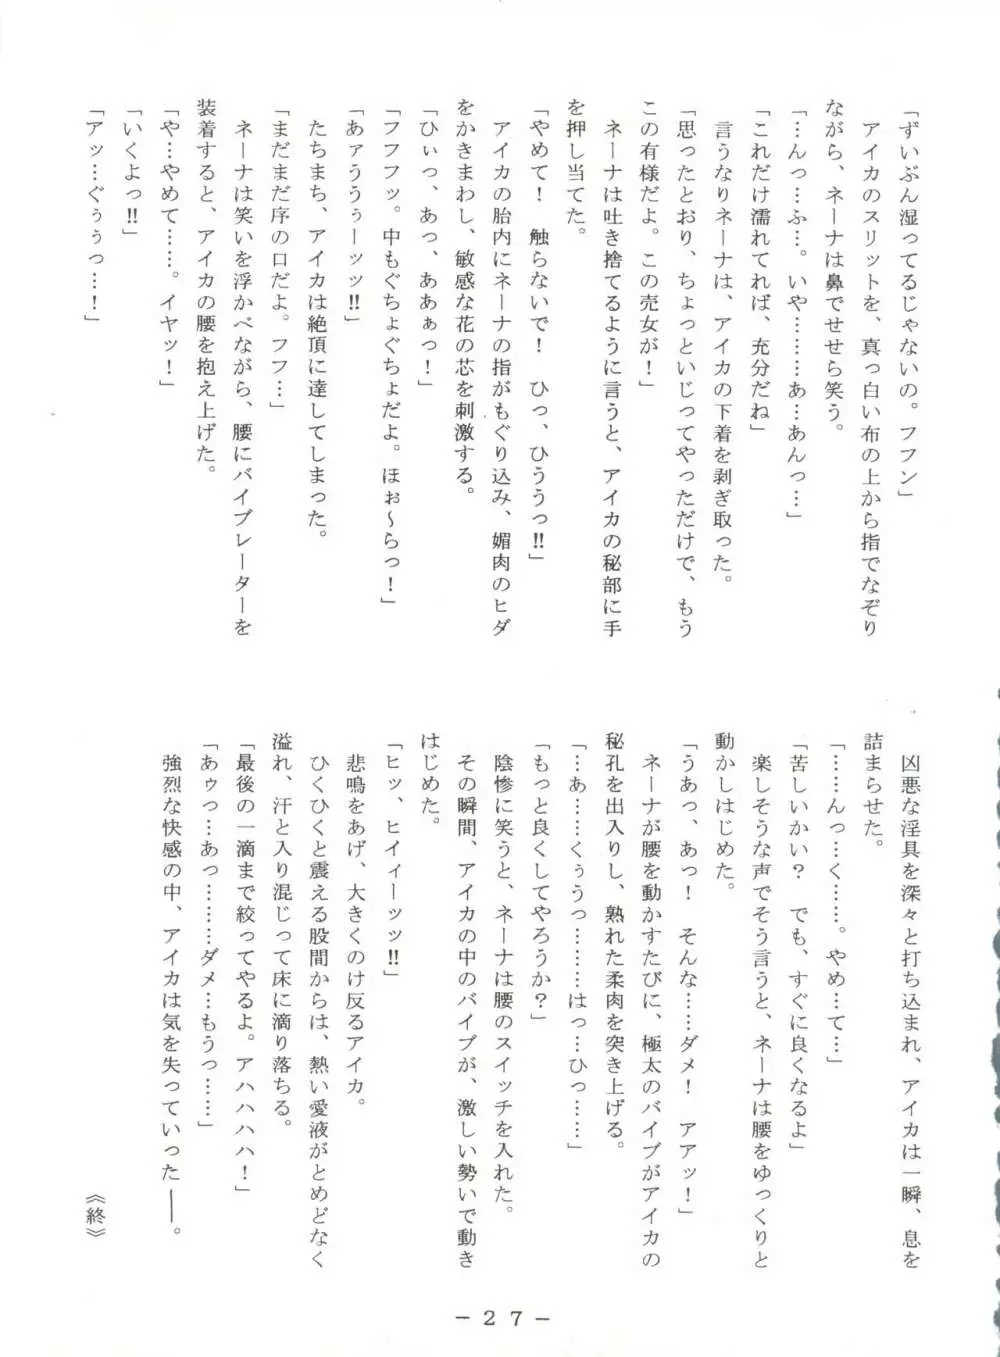 「ずいぶん湿ってるじゃないの。フフン」
アイカのスリットを、真っ白い布の上から指でなぞり
ながら、ネーナは鼻でせせら笑う。
「…んっ…ふ…。いや………あ…あんっ…」
「これだけ濡れてれば、充分だね」
言うなりネーナは、アイカの下着を剥ぎ取った。
「思ったとおり、ちょっといじってやっただけで、もう
この有様だよ。この売女が！」
ネーナは吐き捨てるように言うと、アイカの秘部に手
を押し当てた。
「やめて！　触らないで！　ひっ、ひううっ!!」
アイカの胎内にネーナの指がもぐり込み、媚肉のヒダ
をかきまわし、敏感な花の芯を刺激する。
「ひぃっ、あっ、ああぁっ！」
「フフフッ。中もぐちょぐちょだよ。ほぉ～らっ！」
「あァううぅーッッ!!」
たちまち、アイカは絶頂に達してしまった。
「まだまだ序の口だよ。フフ…」
ネーナは笑いを浮かべながら、腰にバイブレーターを
装着すると、アイカの腰を抱え上げた。
「や…やめて……。イヤッ！」
「いくよっ!!」
「アッ…ぐぅぅっ…！」
凶悪な淫具を深々と打ち込まれ、アイカは一瞬、息を
詰まらせた。
「……んっ…く……。やめ…て…」
「苦しいかい？　でも、すぐに良くなるよ」
楽しそうな声でそう言うと、ネーナは腰をゆっくりと
動かしはじめた。
「うあっ、あっ！　そんな……ダメ！　アアッ！」
ネーナが腰を動かすたびに、極太のバイブがアイカの
秘孔を出入りし、熟れた柔肉を突き上げる。
「…あ……くぅうっ………はっ…ひっ……」
「もっと良くしてやろうか？」
陰惨に笑うと、ネーナは腰のスイッチを入れた。
その瞬間、アイカの中のバイブが、激しい勢いで動き
はじめた。
「ヒッ、ヒイィーッッ!!」
悲鳴をあげ、大きくのけ反るアイカ。
ひくひくと震える股間からは、熱い愛液がとめどなく
溢れ、汗と入り混じって床に滴り落ちる。
「最後の一滴まで絞ってやるよ。アハハハハ！」
「あゥっ…あっ………ダメ…もうっ……」
強烈な快感の中、アイカは気を失っていった――。
《終》
－27－